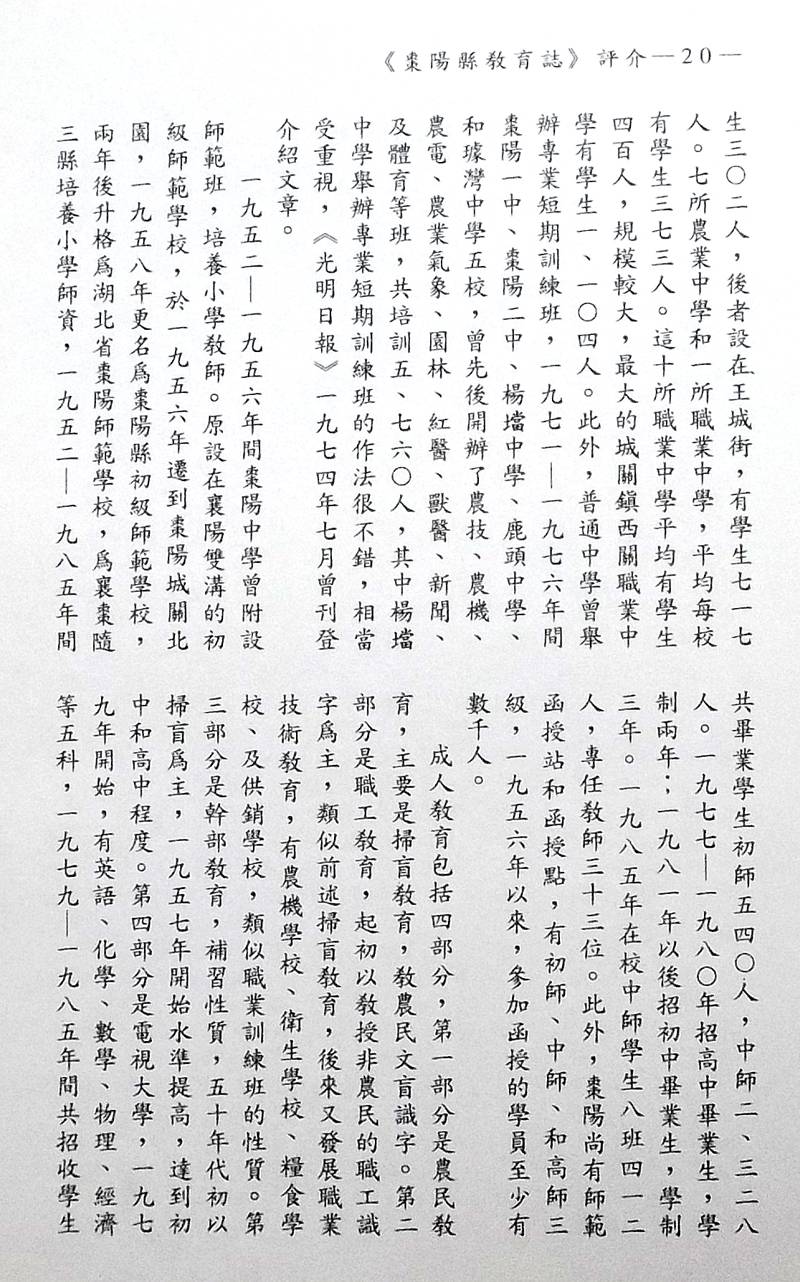 《棗陽縣教育誌》評介—20—
生三〇二人，後者設在王城街，有學生七一七
人。七所農業中學和一所職業中學，平均每校
有學生三七三人。這十所職業中學平均有學生
四百人，規模較大，最大的城關鎮西關職業中
學有學生一、一〇四人。此外，普通中學曾舉
辦專業短期訓練班，一九七一—一九七六年間
棗陽一中、棗陽二中、楊壋中學、鹿頭中學、
和璩灣中學五校，曾先後開辦了農技、農機、
農電、農業氣象、園林、紅醫、獸醫、新聞、
及體育等班，共培訓五、七六〇人，其中楊壋
中學舉辦專業短期訓練班的作法很不錯，相當
受重視，《光明日報》一九七四年七月曾刊登
介紹文章。
一九五二—一九五六年間棗陽中學曾附設
師範班，培養小學教師。原設在襄陽雙溝的初
級師範學校，於一九五六年遷到棗陽城關北
園，一九五八年更名爲棗陽縣初級師範學校，
兩年後升格爲湖北省棗陽師範學校，爲襄棗隨
三縣培養小學師資，一九五二—一九八五年間
共畢業學生初師五四〇人，中師二、三二八
人。一九七七—一九八〇年招高中畢業生，學
制兩年；一九八一年以後招初中畢業生，學制
三年。一九八五年在校中師學生八班四一二
人，專任教師三十三位。此外，棗陽尚有師範
函授站和函授點，有初師、中師、和高師三
級，一九五六年以來，參加函授的學員至少有
數千人。
成人教育包括四部分，第一部分是農民教
育，主要是掃盲教育，教農民文盲識字。第二
部分是職工教育，起初以教授非農民的職工識
字爲主，類似前述掃盲教育，後來又發展職業
技術教育，有農機學校、衛生學校、糧食學
校、及供銷學校，類似職業訓練班的性質。第
三部分是幹部教育，補習性質，五十年代初以
掃盲爲主，一九五七年開始水準提高，達到初
中和高中程度。第四部分是電視大學，一九七
九年開始，有英語、化學、數學、物理、經濟
等五科，一九七九—一九八五年間共招收學生